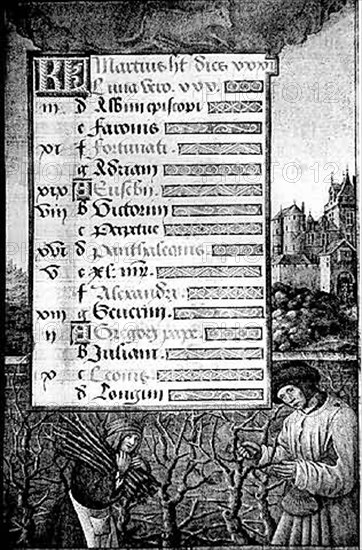 KL Martius ht dies xxxi
Luna vero xxx.
iii d Albini episcopi
e Faronis
xi f Fortunati.
g Adriani
xix A Eusebii.
viii b Victorini
c Perpetue
xvi d Panthaleonis.
v e xl. mr.
f Alexandri.
xiii g Severini.
ii A Gregorii pape.
b Juliani.
x c Leonis.
d Longini